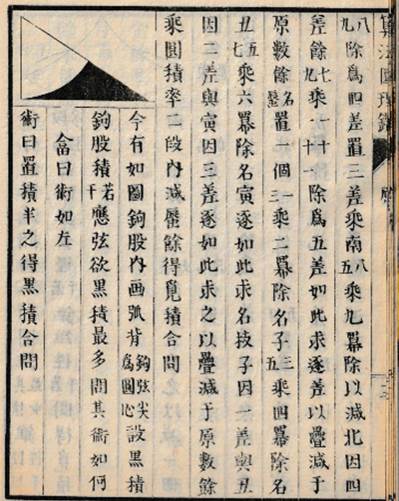 八九除爲四差置三差乘南八五乘九冪除以減北因四
差餘七九乘十一一十除爲五差如此求逐差以疊減于
原數餘名鼈置一個一三乘二冪除名子三五乘四冪除名
丑五七乘六冪除名寅逐如此求名技子因一差與丑
因二差與寅因三差逐如此求之以疊減于原數餘
乘圓積率二段内減鼈餘得覓積合問
今有如圖鉤股内画弧背鉤弦尖爲圓心設黑積
鉤股積若干應弦欲黑積最多問其術如何
答曰術如左
術曰置積半之得黑積合問